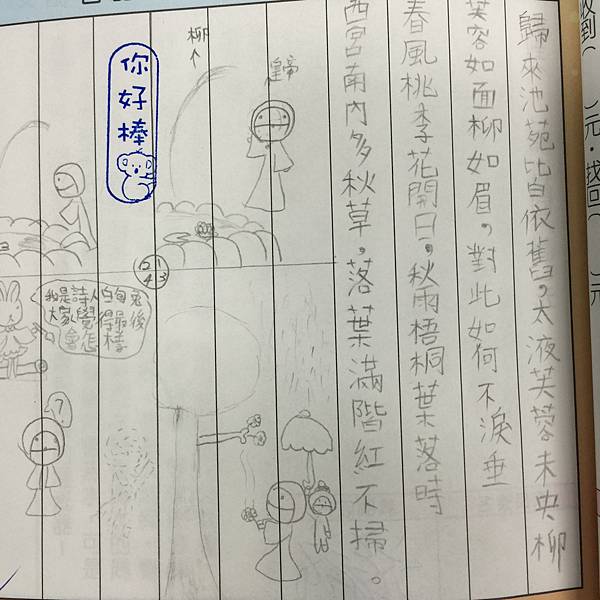 歸來池苑皆依舊，太液芙蓉未央柳
芙容如面柳如眉，對此如何不淚垂
春風桃李花開日，秋雨梧桐葉落時
西宮南內多秋草，落葉滿階紅不掃。
皇帝
柳
你好棒
2 1
4 3
我是詩人白甸兔
大家覺得最後
會怎樣
?
元，找回
元